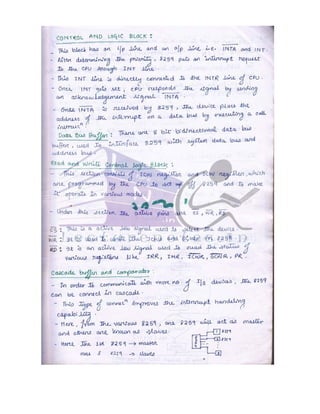 CONTROL AND LOGIC BLOCK :
- This block has an i/p line and an o/p line i.e. INTA and INT.
- After determining the priority, 8259 puts an interrupt request
to the CPU through INT line.
- This INT line is directly connected to the INTR line of CPU.
- Once INT gets set, CPU responds the signal by sending
an acknowledgement signal INTA.
- Once INTA is received by 8259, the device places the
address of the interrupt on a data bus by executing a call
instruⁿ.
Data Bus Buffer : There are 8 bit bidirectional data bus
buffer, used to interface 8259 with system data bus and
address bus.
Read and Write Control Logic Block :
This section consists of ICW register and OCW register, which
are programmed by the CPU to set up 8259 and to make
it operate in various modes.
- Under this section the active pins are CS, WR, RD
CS : This is a active low signal used to select the device
WR :
RD : It is an active low signal used to read the status of
various registers like IRR, IMR, ISR
Cascade buffer and comparator :
- In order to communicate with more no. of I/o devices, the 8259
can be connect in cascade.
- This type of connecⁿ improves the interrupt handling
capability.
- Here, from the various 8259, one 8259 will act as master
and others are known as slaves.
- Here the 1st 8259 → master
8259 → slaves
8259
8259